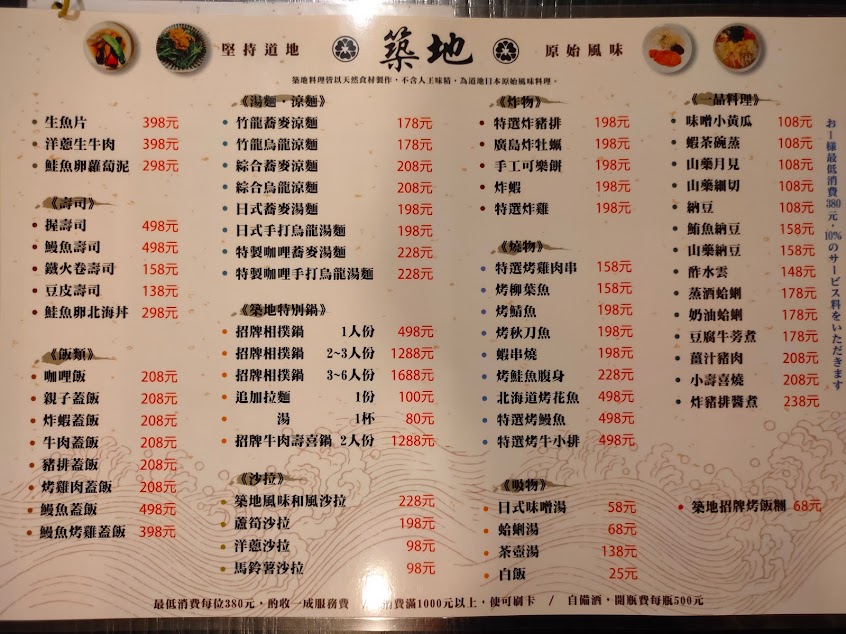 堅持道地 築地 原始風味
築地料理皆以天然食材製作，不含人工味精，為道地日本原始風味料理。
生魚片 398元
洋蔥生牛肉 398元
鮭魚卵蘿蔔泥 298元
《壽司》
握壽司 498元
鰻魚壽司 498元
鐵火卷壽司 158元
豆皮壽司 138元
鮭魚卵北海丼 298元
《飯類》
咖哩飯 208元
親子蓋飯 208元
炸蝦蓋飯 208元
牛肉蓋飯 208元
豬排蓋飯 208元
烤雞肉蓋飯 208元
鰻魚蓋飯 498元
鰻魚烤雞蓋飯 398元
《湯麵·涼麵》
竹籠蕎麥涼麵 178元
竹籠烏龍涼麵 178元
綜合蕎麥涼麵 208元
綜合烏龍涼麵 208元
日式蕎麥湯麵 198元
日式手打烏龍湯麵 198元
特製咖哩蕎麥湯麵 228元
特製咖哩手打烏龍湯麵 228元
《築地特別鍋》
招牌相撲鍋 1人份 498元
招牌相撲鍋 2~3人份 1288元
招牌相撲鍋 3~6人份 1688元
追加拉麵 1份 100元
湯 1杯 80元
招牌牛肉壽喜鍋 2人份 1288元
《沙拉》
築地風味和風沙拉 228元
蘆筍沙拉 198元
洋蔥沙拉 98元
馬鈴薯沙拉 98元
《炸物》
特選炸豬排 198元
廣島炸牡蠣 198元
手工可樂餅 198元
炸蝦 198元
特選炸雞 198元
《燒物》
特選烤雞肉串 158元
烤柳葉魚 158元
烤鯖魚 198元
烤秋刀魚 198元
蝦串燒 198元
烤鮭魚腹身 228元
北海道烤花魚 498元
特選烤鰻魚 498元
特選烤牛小排 498元
《吸物》
日式味噌湯 58元
蛤蜊湯 68元
茶壺湯 138元
白飯 25元
《一品料理》
味噌小黃瓜 108元
蝦茶碗蒸 108元
山藥月見 108元
山藥細切 108元
納豆 108元
鮪魚納豆 158元
山藥納豆 158元
酢水雲 148元
蒸酒蛤蜊 178元
奶油蛤蜊 178元
豆腐牛蒡煮 178元
薑汁豬肉 208元
小壽喜燒 208元
炸豬排醬煮 238元
築地招牌烤飯糰 68元
お一様最低消費380元，10%のサービス料をいただきます
最低消費每位380元，酌收一成服務費 / 消費滿1000元以上，使可刷卡 / 自備酒，開瓶費每瓶500元